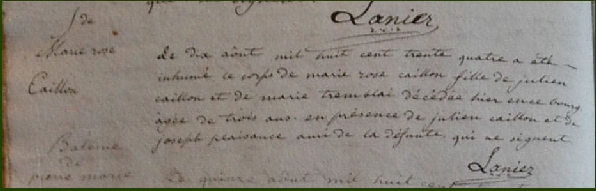 Lanier
S de
Marie rose
Caillon
Le dix août mil huit cent trente quatre a été
inhumé le corps de marie rose caillon fille de julien
caillon et de marie tremblai décédée hier en ce bourg
agée de trois ans en présence de julien caillon et de
joseph plaisance ami de la défunte qui ne signent
Lanier
Batême
de
pierre marie
Le quinze août mil huit cent